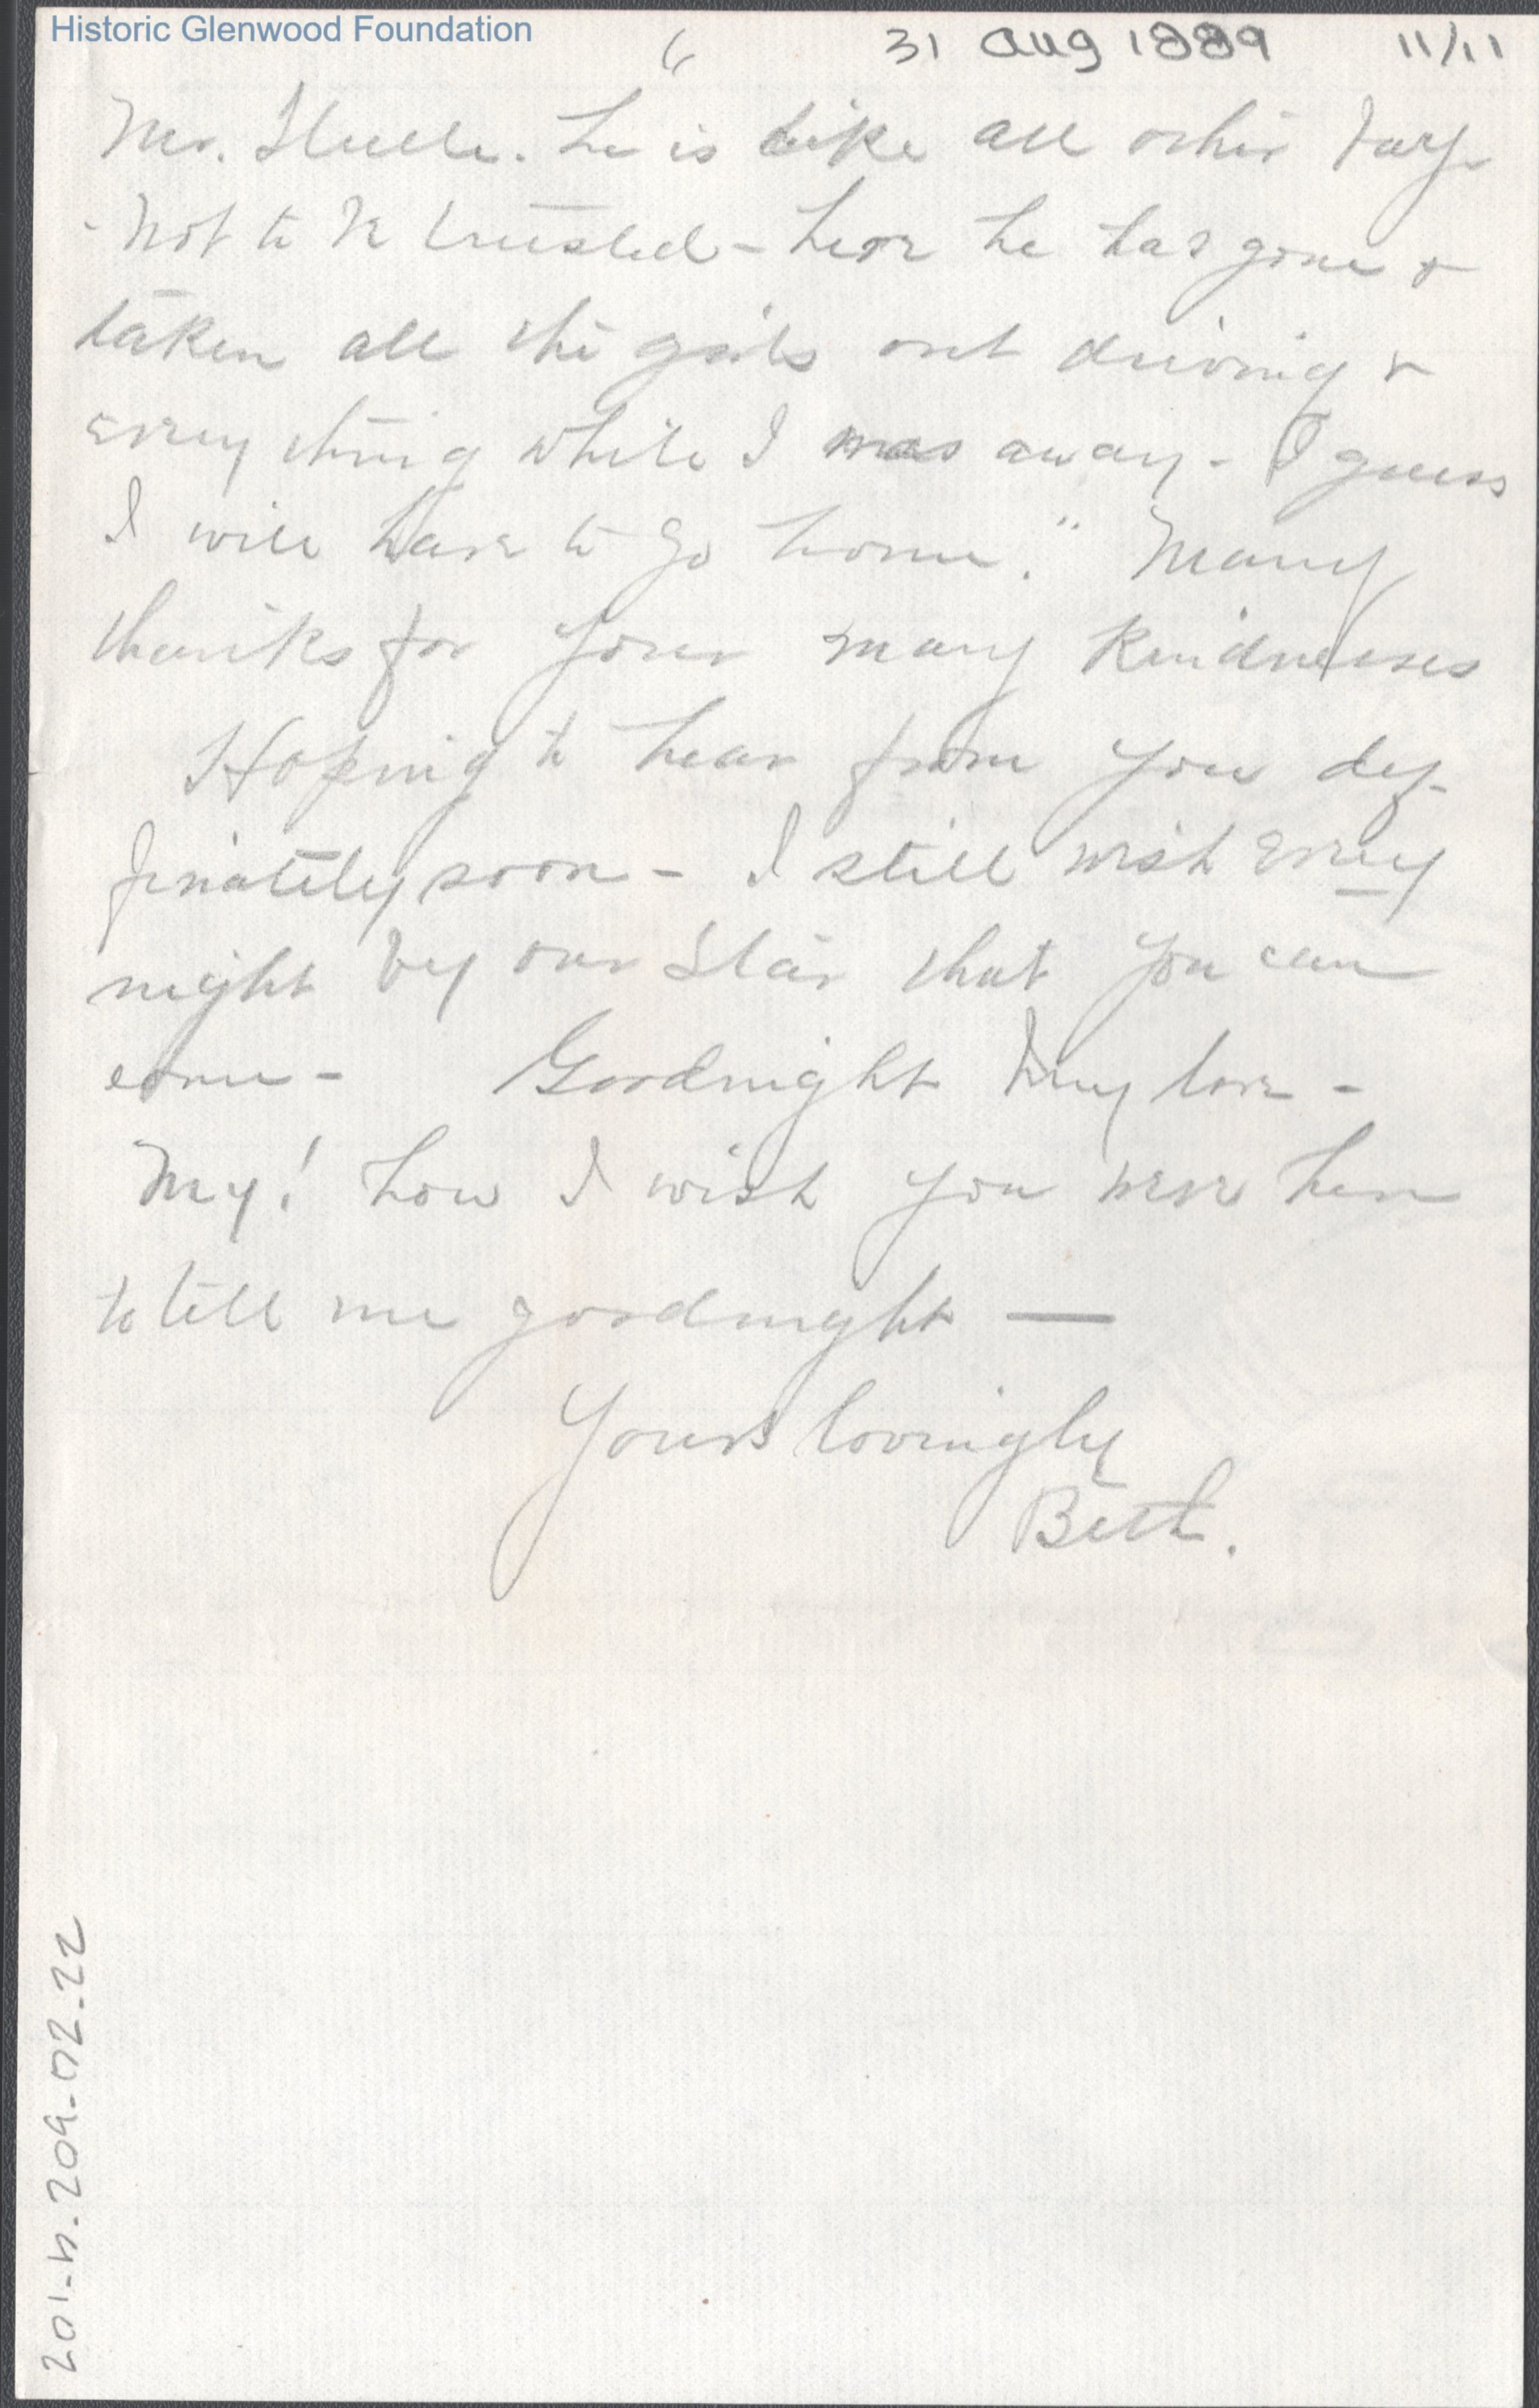 Historic Glenwood Foundation
6 31 Aug 1889 11/11
Mr. he is like all other boys
- Not to be trusted - here he has gone &
taken all the girls out driving &
every thing while I was away - I guess
I will have to go home." Many
thanks for your many kindnesses
Hoping to hear from you def-
finately soon - I still wish every
night by our star that you can
come - Goodnight my love -
My! how I wish you were here
to tell me goodnight —
Yours lovingly
Beth.
201-h.209-02-22